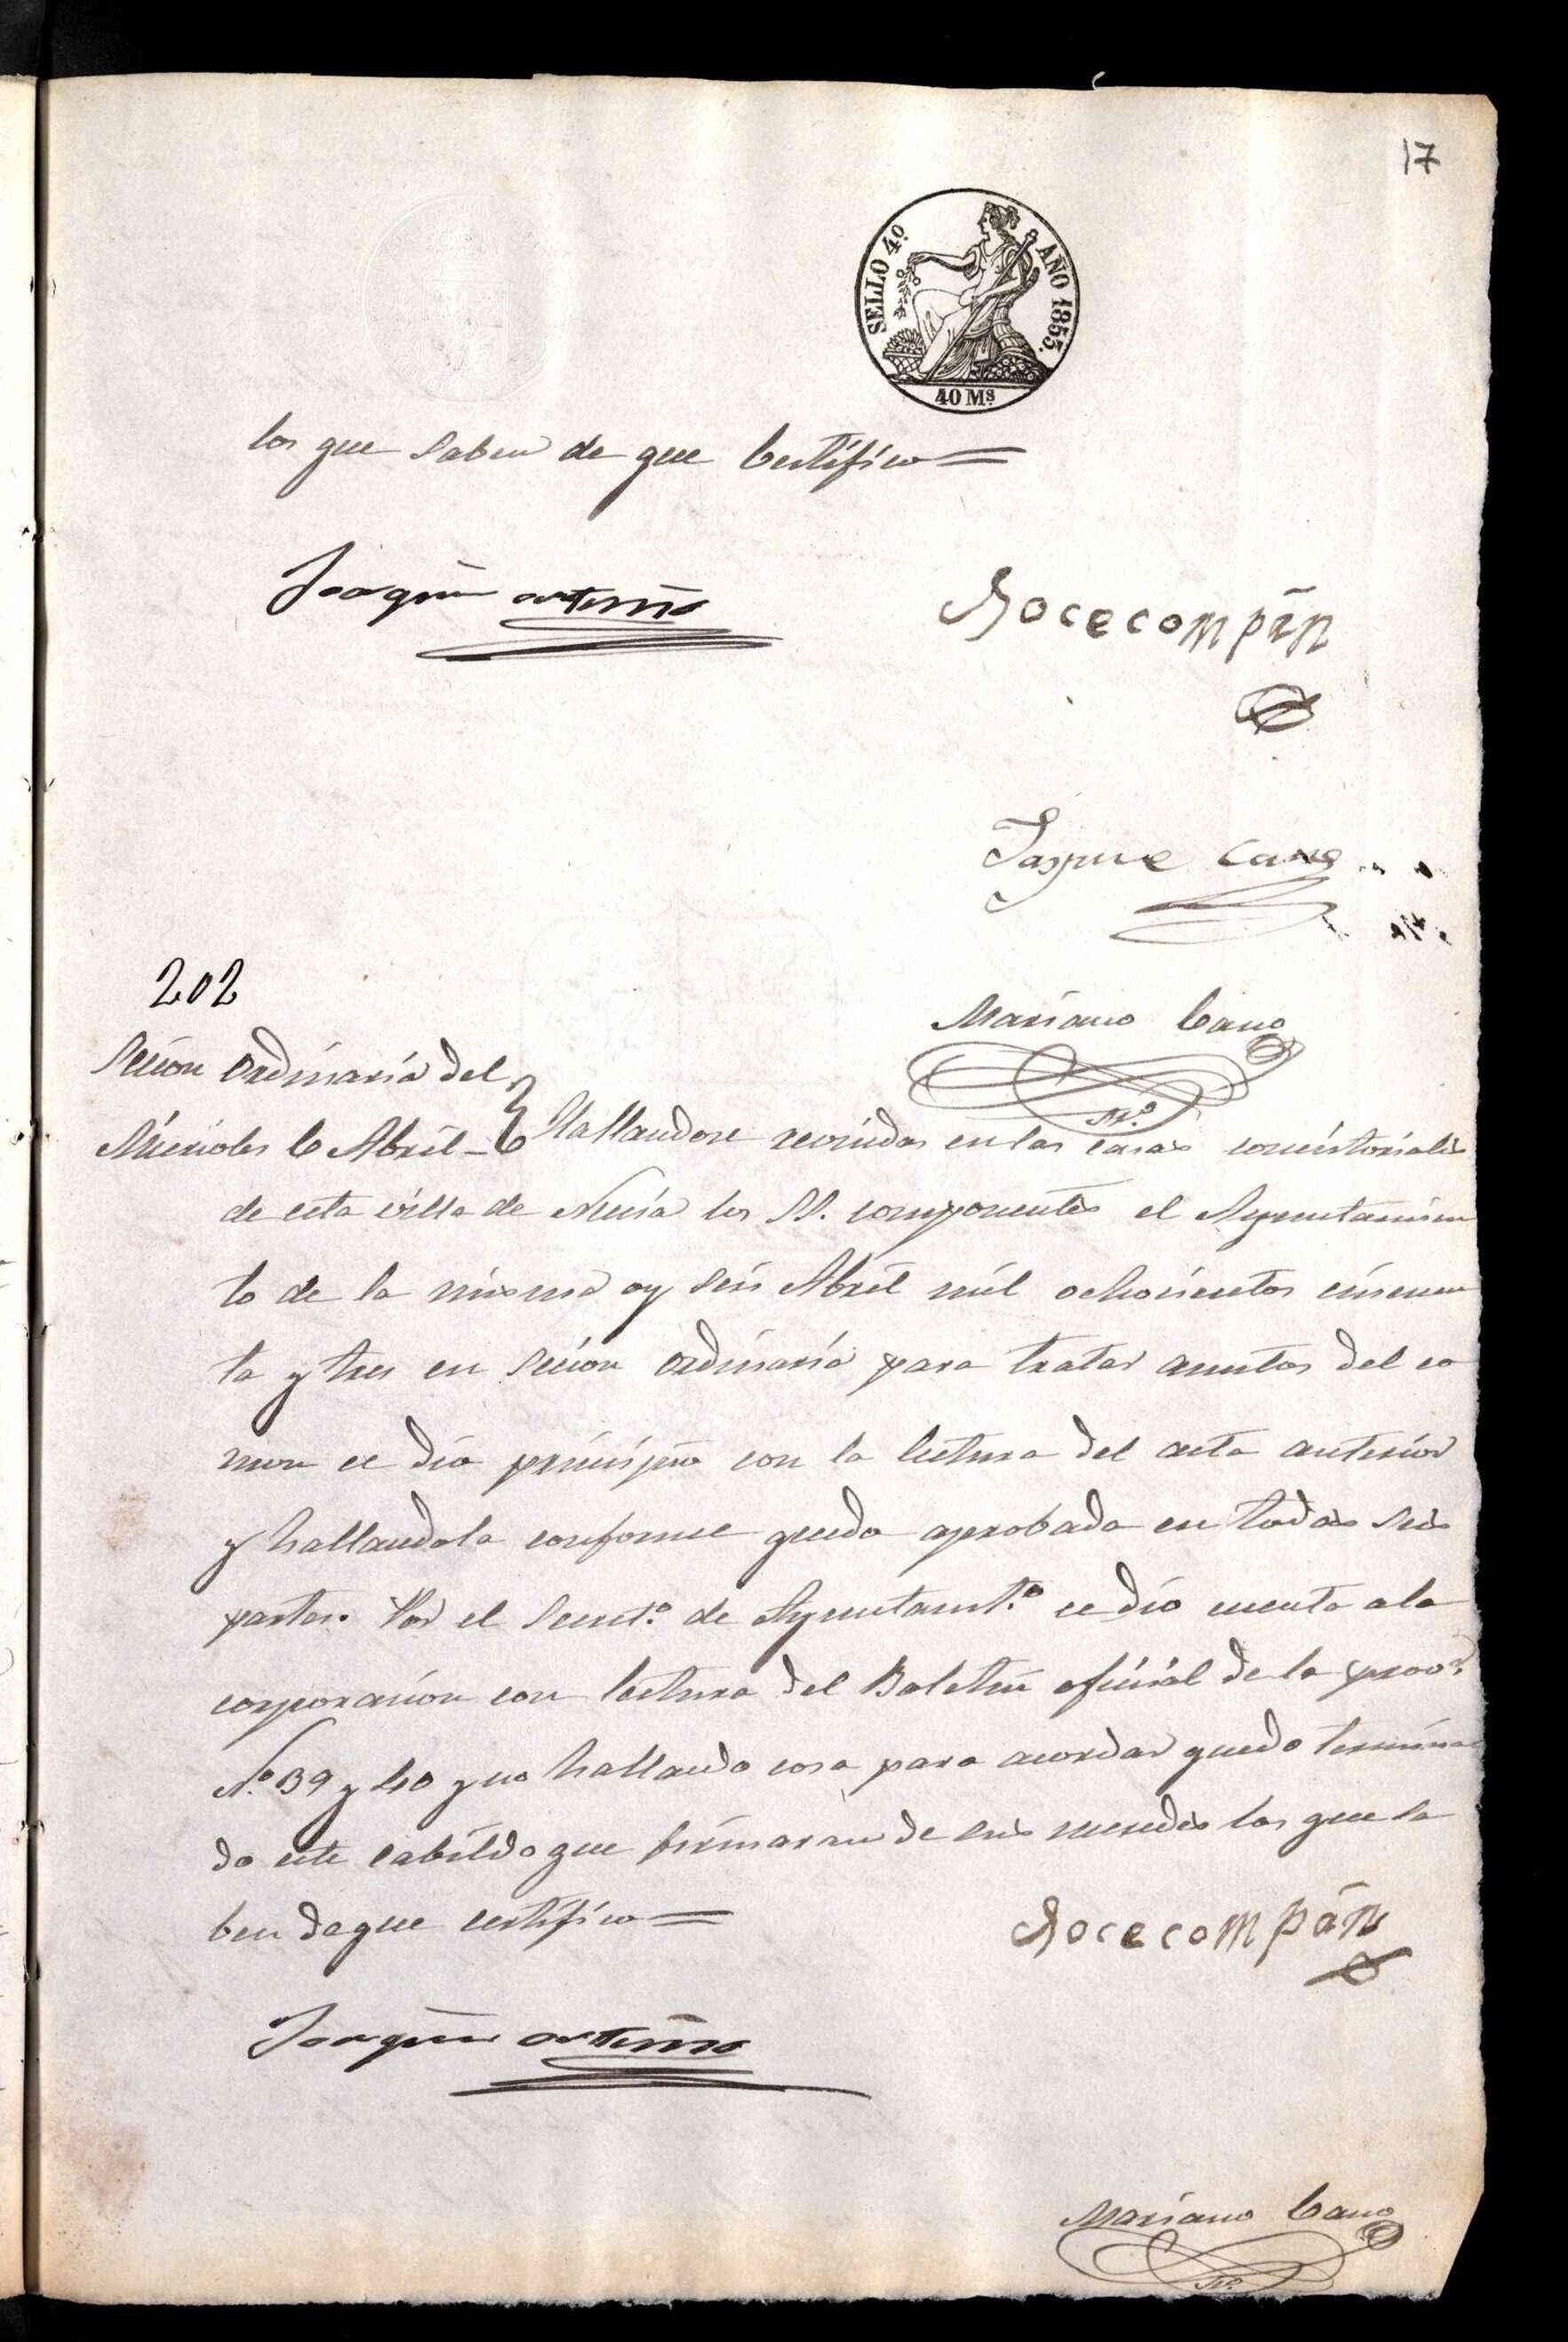 17
SELLO 4º. AÑO 1853.
40 Ms
los que saben de que Certifico=
Joaquin
Rocecompañ
Jaspue Cano
Mariano Cano
Sº.
202
Secion Ordinaria del
Miercoles 6 Abril-
Hallandose reonidos en las casas concistoriales
de esta villa de Nucia los SS. componentes el Ayuntamien
to de la misma oy seis Abril mil ochocientos cincuen
ta y tres en secion ordinaria para tratar asuntos del co
mun se dio principio con la lectura del acta anterior
y hallandola conforme quedo aprobada en todas sus
partes. Por el Secretº. de Ayuntamtº. se dio cuenta a la
corporacion con lectura del Boletin oficial de la provª.
Nº. 39 y 40 y no hallando cosa para acordar quedo termina
do este cabildo que firmaran de sus mercedes los que sa
ben de que certifico=
Rocecompañ
Joaquin
Mariano Cano
Sº.